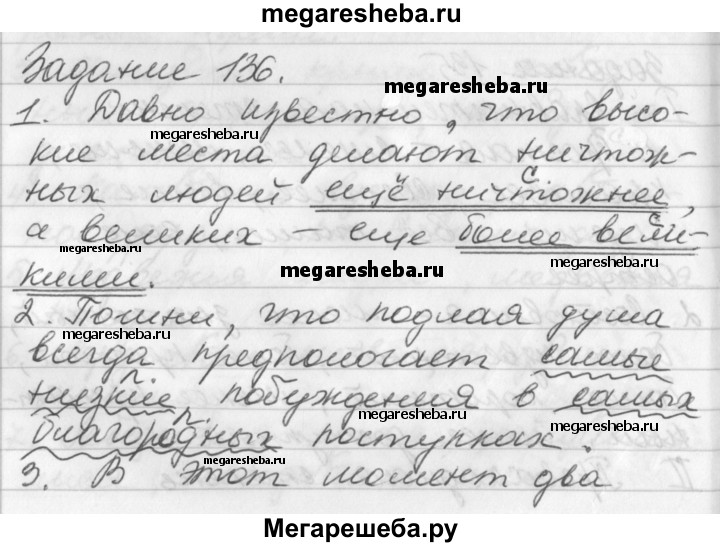 megaresheba.ru
Задание 136.
megaresheba.ru
1. Давно известно, что высо-
megaresheba.ru megaresheba.ru
кие места делают ничтож-
ных людей ещё ничтожнее,
с
с
а великих – еще более вели-
megaresheba.ru megaresheba.ru
кими.
megaresheba.ru
2. Помни, что подлая душа
megaresheba.ru megaresheba.ru
всегда предпологает самые
п.
низшие побуждения в самых
megaresheba.ru
п.
благородных поступках.
megaresheba.ru
3. В этот момент два
megaresheba.ru
Мегарешеба.ру